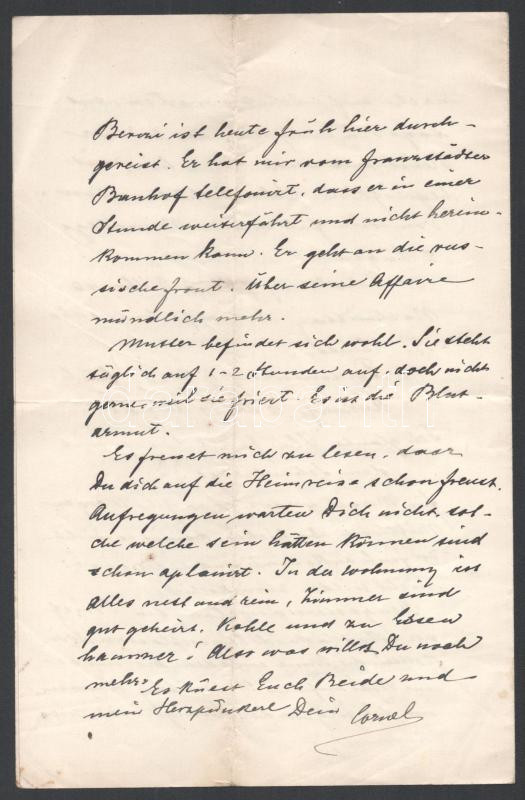 Berczi ist heute früh hier durch-
gereist. Er hat mir vom Franzstädter
Banhof telefonirt, dass er in einer
Stunde weiterfährt und nicht herein-
kommen kann. Er geht an die rus-
sische front. Über seine Affaire
mündlich mehr.
Mutter befindet sich wohl. Sie steht
täglich auf 1-2 Stunden auf, doch nicht
gerne, weil sie friert. Es ist die Blut-
armut.
Es freuet mich zu lesen, dass
Du dich auf die Heimreise schon freust.
Aufregungen warten Dich nicht, sol-
che welche sein hätten können sind
schon aplanirt. In der Wohnung ist
alles nett und rein, Zimmer sind
gut geheizt. Kohle und zu Essen
hammer! Also was willst Du noch
mehr? Es küsst Euch Beide und
mein Herzpünkerl Dein Cornel